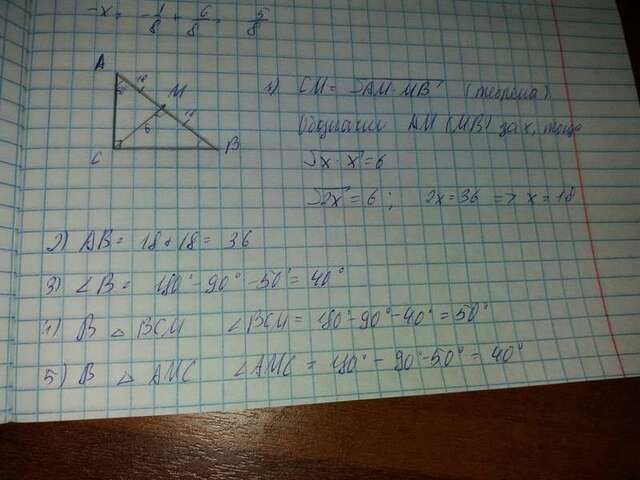 -x = -1/8 + 6/8 5/8
A
M
6
C
B
1) CM = √AM·MB (теорема)
Обозначим AM (MB) за x, тогда
√x·x = 6
√2x = 6; 2x = 36 => x = 18
2) AB = 18 + 18 = 36
3) ∠B = 180° - 90° - 50° = 40°
4) В △ BCM ∠BCM = 180° - 90° - 40° = 50°
5) В △ AMC ∠AMC = 180° - 90° - 50° = 40°